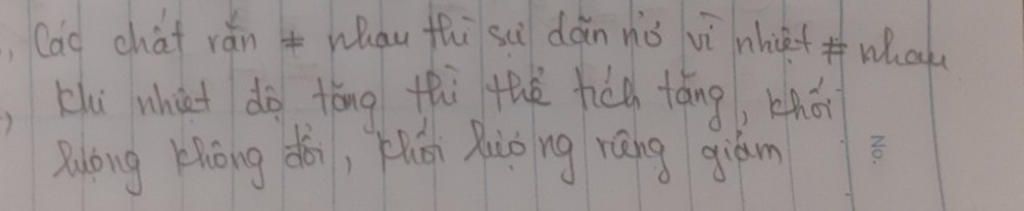 ., Các chất rắn ≠ nhau thì sự dãn nở vì nhiệt ≠ nhau
) khi nhiệt độ tăng thì thể tích tăng, khối
lượng không đổi, khối lượng riêng giảm
No.